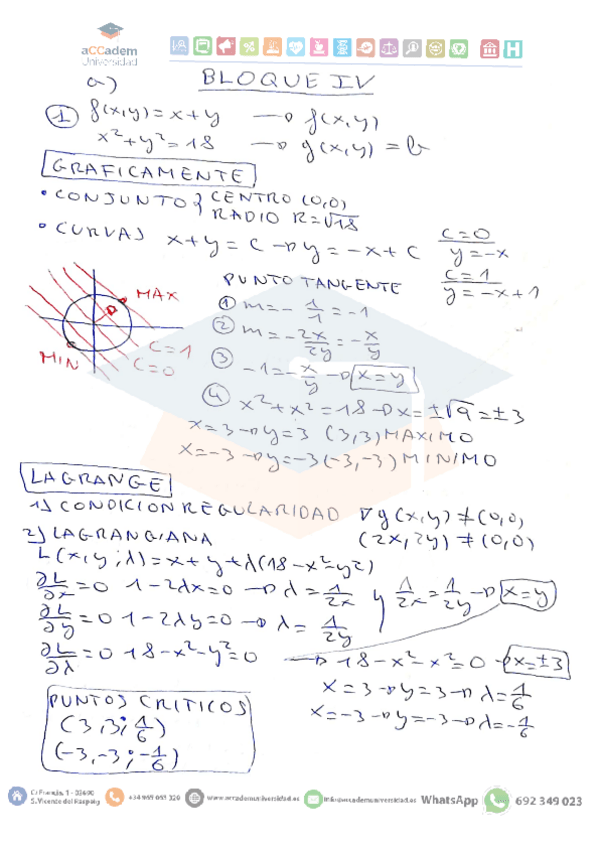 aCCadem
Universidad
a) BLOQUE IV
① f(x,y)=x+y → f(x,y)
x²+y²=18 → g(x,y)=b
GRAFICAMENTE
• CONJUNTO { CENTRO (0,0)
RADIO R=√18
• CURVAS x+y=C → y=-x+C
C=0
y=-x
C=1
y=-x+1
MAX
MIN
C=1
C=0
PUNTO TANGENTE
① m=-1/1=-1
② m=-2x/2y=-x/y
③ -1=-x/y → x=y
④ x²+x²=18 → x=±√9=±3
x=3 → y=3 (3,3) MAXIMO
x=-3 → y=-3 (-3,-3) MINIMO
LAGRANGE
1) CONDICION REGULARIDAD ∇g(x,y)≠(0,0)
(2x,2y)≠(0,0)
2) LAGRANGIANA
L(x,y;λ)=x+y+λ(18-x²-y²)
∂L/∂x=0 1-2λx=0 → λ=1/2x
∂L/∂y=0 1-2λy=0 → λ=1/2y
} 1/2x=1/2y → x=y
∂L/∂λ=0 18-x²-y²=0 → 18-x²-x²=0 → x=±3
x=3 → y=3 → λ=1/6
x=-3 → y=-3 → λ=-1/6
PUNTOS CRITICOS
(3,3;1/6)
(-3,-3;-1/6)
S.Vicente del Raspeig
www.accademuniversidad.es
info@accademuniversidad.es
WhatsApp
692 349 023